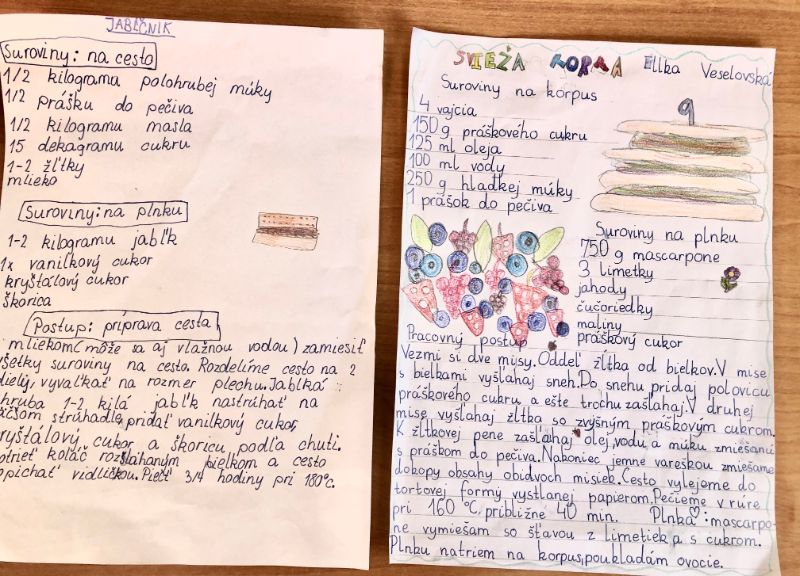 JABĹČNIK
Suroviny: na cesto
1/2 kilogramu polohrubej múky
1/2 prášku do pečiva
1/2 kilogramu masla
15 dekagramu cukru
1-2 žĺtky
mlieko
Suroviny: na plnku
1-2 kilogramu jabĺk
1x vanilkový cukor
kryštálový cukor
škorica
Postup: príprava cesta
mliekom (môže sa aj vlažnou vodou) zamiesiť
všetky suroviny na cesto. Rozdelíme cesto na 2
diely, vyvaľkať na rozmer plechu. Jablká:
hruba 1-2 kilá jabĺk nastrúhať na
strúhadle, pridať vanilkový cukor,
kryštálový cukor a škoricu podľa chuti.
potrieť koláč rozšľahaným bielkom a cesto
popichať vidličkou. Piecť 3/4 hodiny pri 180°C.
SVIEŽA TORTA Ellka Veselovská
Suroviny na korpus
4 vajcia
150 g práškového cukru
125 ml oleja
100 ml vody
250 g hladkej múky
1 prášok do pečiva
Suroviny na plnku
750 g mascarpone
3 limetky
jahody
čučoriedky
maliny
práškový cukor
Pracovný postup
Vezmi si dve misy. Oddeľ žĺtba od bielkov. V mise
s bielkami vyšľahaj sneh. Do snehu pridaj polovicu
práškového cukru a ešte trochu zašľahaj. V druhej
mise vyšľahaj žĺtba so zvyšným práškovým cukrom.
K žĺtkovej pene zašľahaj olej, vodu a múku zmiešanú
s práškom do pečiva. Nakoniec jemne vareškou zmiešame
dokopy obsahy obidvoch misiek. Cesto vylejeme do
tortovej formy vystlanej papierom. Pečieme v rúre
pri 160 °C, približne 40 min. Plnka: mascarpo-
ne vymiešam so šťavou z limetiek a s cukrom.
Plnku natriem na korpus, poukladám ovocie.